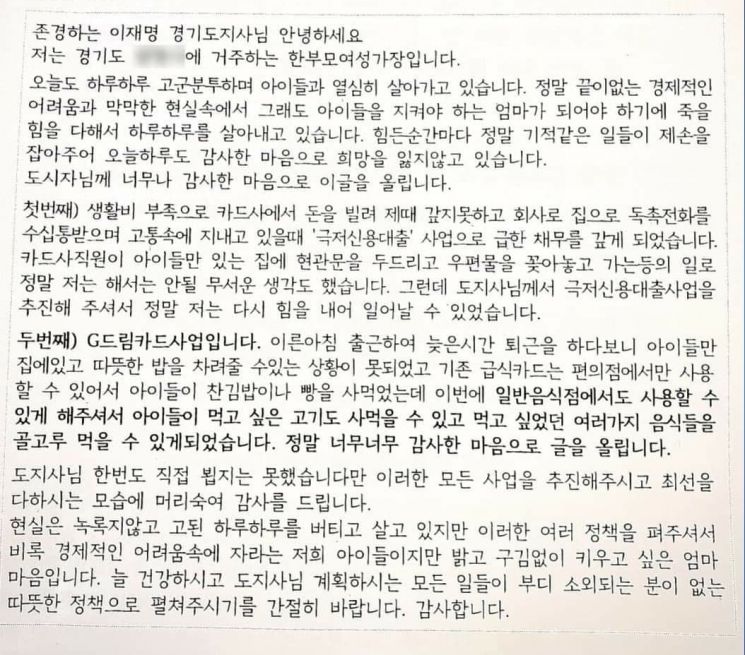 존경하는 이재명 경기도지사님 안녕하세요
저는 경기도 에 거주하는 한부모여성가장입니다.
오늘도 하루하루 고군분투하며 아이들과 열심히 살아가고 있습니다. 정말 끝이없는 경제적인
어려움과 막막한 현실속에서 그래도 아이들을 지켜야 하는 엄마가 되어야 하기에 죽을
힘을 다해서 하루하루를 살아내고 있습니다. 힘든순간마다 정말 기적같은 일들이 제손을
잡아주어 오늘하루도 감사한 마음으로 희망을 잃지않고 있습니다.
도시자님께 너무나 감사한 마음으로 이글을 올립니다.
첫번째) 생활비 부족으로 카드사에서 돈을 빌려 제때 갚지못하고 회사로 집으로 독촉전화를
수십통받으며 고통속에 지내고 있을때 '극저신용대출' 사업으로 급한 채무를 갚게 되었습니다.
카드사직원이 아이들만 있는 집에 현관문을 두드리고 우편물을 꽂아놓고 가는등의 일로
정말 저는 해서는 안될 무서운 생각도 했습니다. 그런데 도지사님께서 극저신용대출사업을
추진해 주셔서 정말 저는 다시 힘을 내어 일어날 수 있었습니다.
두번째) G드림카드사업입니다. 이른아침 출근하여 늦은시간 퇴근을 하다보니 아이들만
집에있고 따뜻한 밥을 차려줄 수있는 상황이 못되었고 기존 급식카드는 편의점에서만 사용
할 수 있어서 아이들이 찬김밥이나 빵을 사먹었는데 이번에 일반음식점에서도 사용할 수
있게 해주셔서 아이들이 먹고 싶은 고기도 사먹을 수 있고 먹고 싶었던 여러가지 음식들을
골고루 먹을 수 있게되었습니다. 정말 너무너무 감사한 마음으로 글을 올립니다.
도지사님 한번도 직접 뵙지는 못했습니다만 이러한 모든 사업을 추진해주시고 최선을
다하시는 모습에 머리숙여 감사를 드립니다.
현실은 녹록지않고 고된 하루하루를 버티고 살고 있지만 이러한 여러 정책을 펴주셔서
비록 경제적인 어려움속에 자라는 저희 아이들이지만 밝고 구김없이 키우고 싶은 엄마
마음입니다. 늘 건강하시고 도지사님 계획하시는 모든 일들이 부디 소외되는 분이 없는
따뜻한 정책으로 펼쳐주시기를 간절히 바랍니다. 감사합니다.